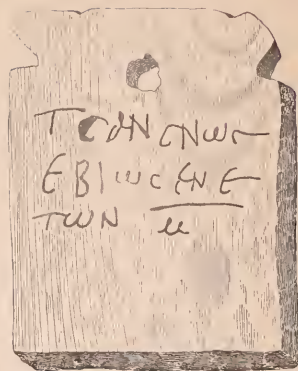 ΤϹΑΝϹΝωϹ
ΕΒΙωϹΕΝ Ε
ΤωΝ μ̅